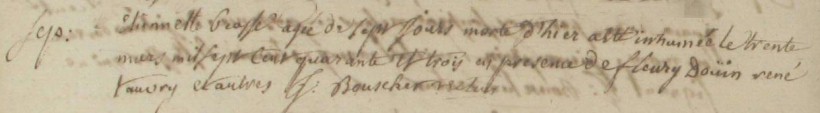 sep: Etiennette brosse agée de sept jours morte d'hier a été inhumée le trente
mars mil sept cent quarante et trois en presence de fleury Doüin rené
vauvry et autres Bouscher recteur